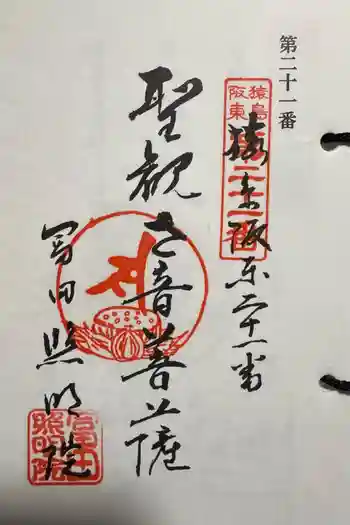 第二十一番
猿島
阪東
猿島阪東二十一番
聖観世音菩薩
冨田照明院
冨田
照明院